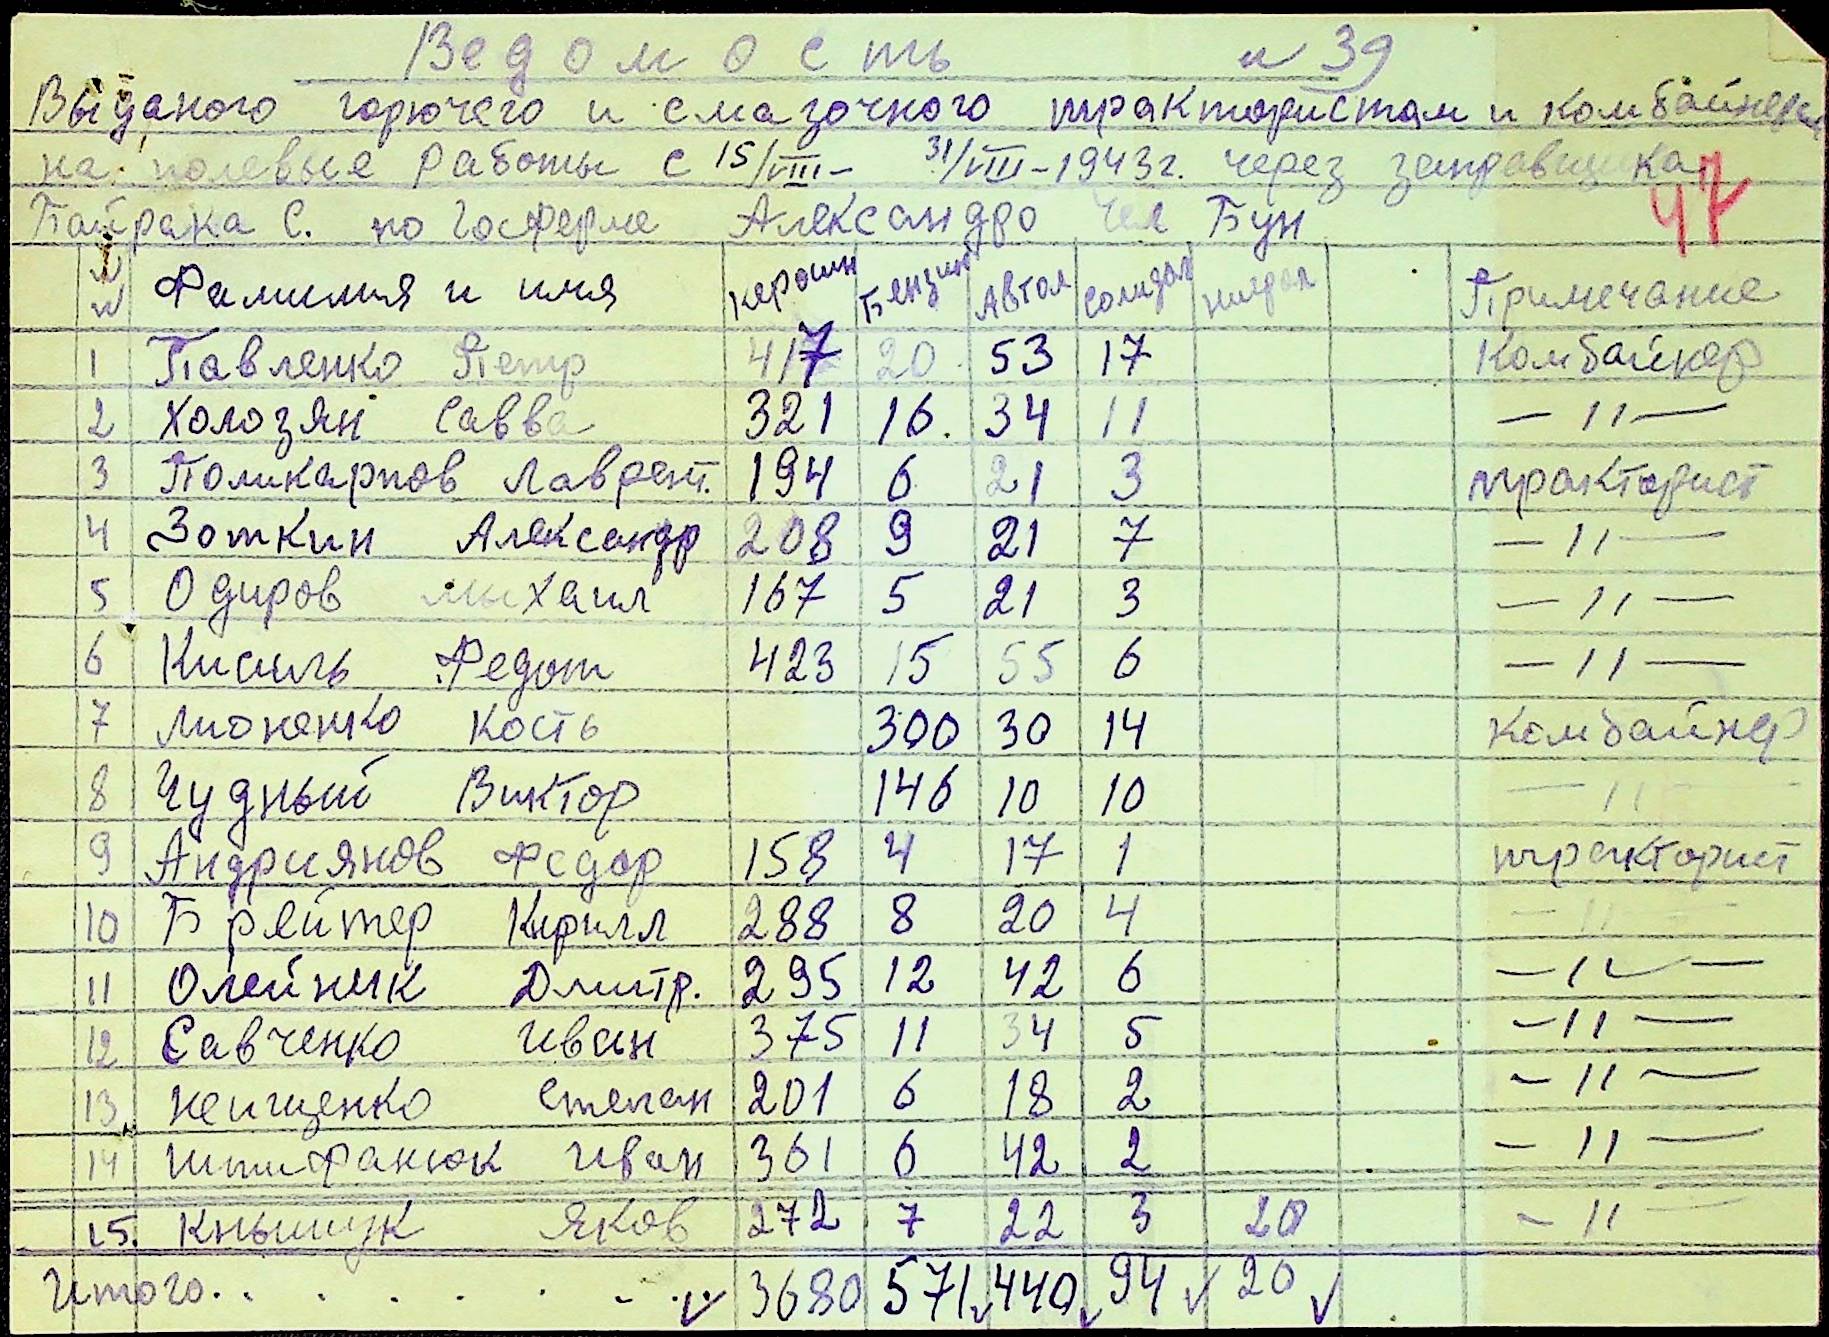 Ведомость № 39
Выданого горючего и смазочного трактористам и комбайнерам
на полевые работы с 15/VIII - 31/VIII - 1943г. через заправщика
Байрака С. по Госферме Александро Чел Бун
47
№№ Фамилия и имя Керосин Бензин Автол Солидол нигрол Примечание
1 Павленко Петр 417 20 53 17 Комбайнер
2 Холозян Савва 321 16 34 11 — 11 —
3 Поликарпов Лаврент. 194 6 21 3 тракторист
4 Зоткин Александр 208 9 21 7 — 11 —
5 Одиров Мыхаил 167 5 21 3 — 11 —
6 Кисиль Федот 423 15 55 6 — 11 —
7 Лионенко Кость 300 30 14 Комбайнер
8 Чудный Виктор 146 10 10 — 11 —
9 Андриянов Федор 158 4 17 1 тракторист
10 Брейтер Кирилл 288 8 20 4 — 11 —
11 Олейник Дмитр. 295 12 42 6 — 11 —
12 Савченко Иван 375 11 34 5 — 11 —
13 Неищенко Степан 201 6 18 2 — 11 —
14 Штифанюк Иван 361 6 42 2 — 11 —
15. Кнышук Яков 272 7 22 3 20 — 11 —
Итого. . . . . . . . 3680 571 440 94 20